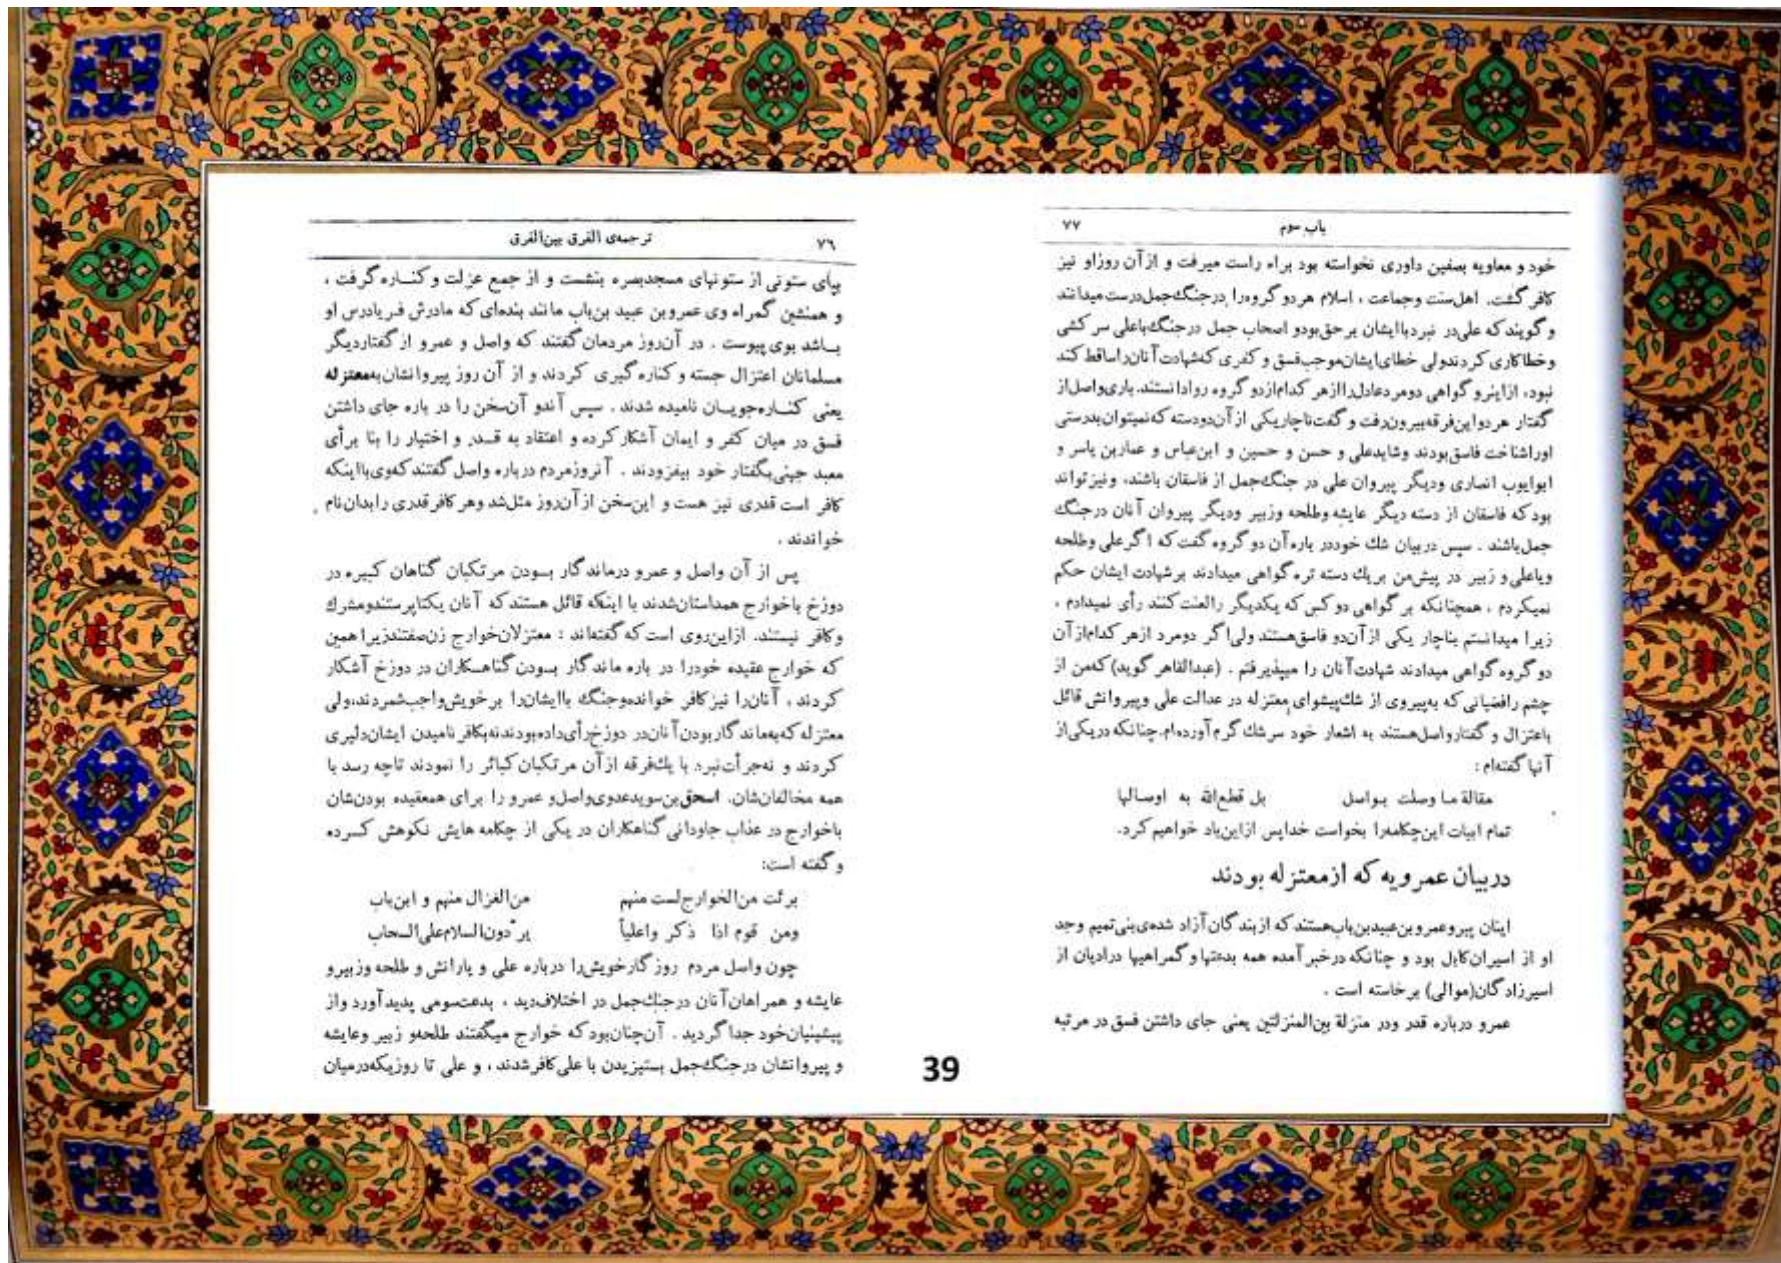 ترجمه‌ی الفرق بین‌الفرق ۷۶
بپای ستونی از ستونهای مسجدبصره بنشست و از جمع عزلت و کنـاره گرفت ،
و همنشین گمراه وی عمروبن عبید بن‌باب مانند بنده‌ای که مادرش فـریادرس او
بـاشد بوی پیوست . در آن‌روز مردمان گفتند که واصل و عمرو از گفتاردیگر
مسلمانان اعتزال جسته و کناره گیری کردند و از آن روز پیروانشان‌به‌معتزله
یعنی کنـاره‌جویـان نامیده شدند . سپس آندو آن‌سخن را در باره جای داشتن
فسق در میان کفر و ایمان آشکار کرده و اعتقاد به قـدر و اختیار را بنا برأی
معبد جهنی‌بگفتار خود بیفزودند . آنروزمردم درباره واصل گفتندکه‌وی‌بااینکه
کافر است قدری نیز هست و این‌سخن از آن‌روز مثل‌شد وهر کافر قدری را بدان نام
خواندند .
پس از آن واصل و عمرو درماندگار بـودن مرتکبان گناهان کبیره در
دوزخ باخوارج همداستان‌شدند با اینکه قائل هستند که آنان یکتاپرستندومشرك
وکافر نیستند. ازاین‌روی است که گفته‌اند : معتزلان‌خوارج زن‌صفتندزیرا همین
که خوارج عقیده خودرا در باره ماندگار بـودن گناهـکاران در دوزخ آشکار
کردند ، آنان‌را نیز کافر خوانده‌وجنگ باایشان‌را برخویش‌واجب‌شمردند،ولی
معتزله که‌بماندگاربودن‌آنان‌در دوزخ‌رأی‌داده‌بودندنه‌بکافر نامیدن ایشان‌دلیری
کردند و نه‌جرأت‌نبرد با یك‌فرقه ازآن مرتکبان‌کبائر را نمودند تاچه رسد با
همه مخالفان‌شان. اسحق‌بن‌سویدعدوی‌واصل‌و عمرو را برای همعقیده بودن‌شان
باخوارج در عذاب جاودانی گناهکاران در یکی از چکامه هایش نکوهش کـرده
و گفته است:
برئت من‌الخوارج‌لست منهم من‌الغزال منهم و ابن‌باب
ومن قوم اذا ذکر واعلیاً یردّون‌السلام‌علی‌السحاب
چون واصل مردم روزگارخویش‌را درباره علی و یارانش و طلحه وزبیرو
عایشه و همراهان‌آنان درجنك‌جمل در اختلاف‌دید ، بدعت‌سومی پدیدآورد واز
پیشینیان‌خود جداگردید . آن‌چنان‌بودکه خوارج میگفتند طلحه‌و زبیر وعایشه
و پیروانشان درجنگ‌جمل بستیزیدن با علی‌کافرشدند ، و علی تا روزیکه‌درمیان
باب سوم ۷۷
خود و معاویه بصفین داوری نخواسته بود براه راست میرفت و ازآن روزاو نیز
کافرگشت. اهل‌سنت وجماعت ، اسلام هردو گروه‌را درجنگ‌جمل‌درست‌میدانند
و گویندکه علی‌در نبردباایشان برحق‌بودو اصحاب جمل درجنگ‌باعلی سرکشی
وخطاکاری کردندولی خطای‌ایشان‌موجب‌فسق و کفری که‌شهادت‌آنان‌راساقط کند
نبود، ازاینرو گواهی دومردعادل‌راازهر کدام‌ازدو گروه رواداشتند. باری‌واصل‌از
گفتار هردواین‌فرقه‌بیرون‌رفت و گفت‌ناچاریکی از آن‌دودسته که‌نمیتوان‌بدرستی
اوراشناخت فاسق‌بودند وشایدعلی و حسن و حسین و ابن‌عباس و عماربن یاسر و
ابوایوب انصاری ودیگر پیروان علی در جنگ‌جمل از فاسقان باشند، ونیز تواند
بودکه فاسقان از دسته دیگر عایشه وطلحه وزبیر ودیگر پیروان آنان درجنگ
جمل‌باشند . سپس دربیان شك خوددر باره‌آن دو گروه گفت‌که اگرعلی وطلحه
ویاعلی‌و زبیر در پیش‌من بریك دسته تره گواهی میدادند برشهادت ایشان حکم
نمیکردم ، همچنانکه برگواهی دوکس که یکدیگر رالعنت‌کنند رأی نمیدادم ،
زیرا میدانستم بناچار یکی ازآن‌دو فاسق‌هستند ولی‌اگر دومرد ازهر کدام‌ازآن
دو گروه گواهی میدادند شهادت‌آنان را میپذیرفتم . (عبدالقاهرگوید) که‌من از
چشم رافضیانی که به‌پیروی از شك‌پیشوای معتزله در عدالت علی وپیروانش قائل
باعتزال و گفتارواصل‌هستند به اشعار خود سرشك گرم آورده‌ام.چنانکه دریکی‌از
آنها گفته‌ام :
مقالة مـا وصلت بـواصل بل قطع‌الله به اوصـالها
تمام ابیات این‌چکامه‌را بخواست خداپس ازاین‌یاد خواهیم کرد.
دربیان عمرویه که ازمعتزله بودند
اینان پیروعمروبن‌عبیدبن‌باب‌هستندکه ازبندگان‌آزاد شده‌ی‌بنی‌تمیم وجد
او از اسیران‌کابل بود و چنانکه درخبر آمده همه بدعتها و گمراهیها درادیان از
اسیرزادگان(موالی) برخاسته است .
عمرو درباره قدر ودر منزلة بین‌المنزلتین یعنی جای داشتن فسق در مرتبه
39